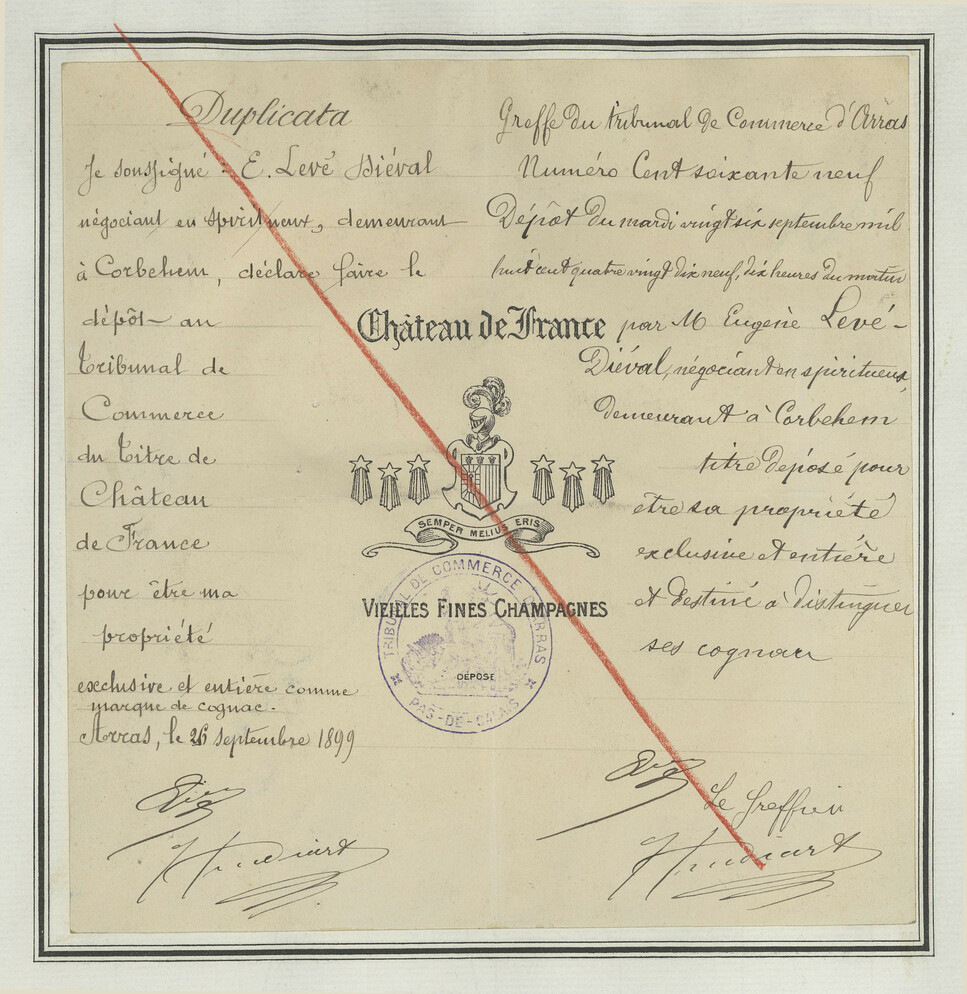 Duplicata
Je soussigné : E. Levé Diéval
négociant en spiritueux, demeurant
à Corbehem, déclare faire le
dépôt au
Tribunal de
Commerce
du Titre de
Château
de France
pour être ma
propriété
exclusive et entière comme
marque de cognac.
Arras, le 26 septembre 1899
Greffe du Tribunal de Commerce d'Arras
Numéro Cent soixante neuf
Dépôt du mardi vingt six septembre mil
huit cent quatre vingt dix neuf, dix heures du matin
par M Eugène Levé-
Diéval, négociant en spiritueux,
demeurant à Corbehem
titre déposé pour
être sa propriété
exclusive et entière
et destiné à distinguer
ses cognac
Le Greffier
Château de France
SEMPER MELIUS ERIS
VIEILLES FINES CHAMPAGNES
TRIBUNAL DE COMMERCE D'ARRAS
DÉPOSÉ
PAS-DE-CALAIS